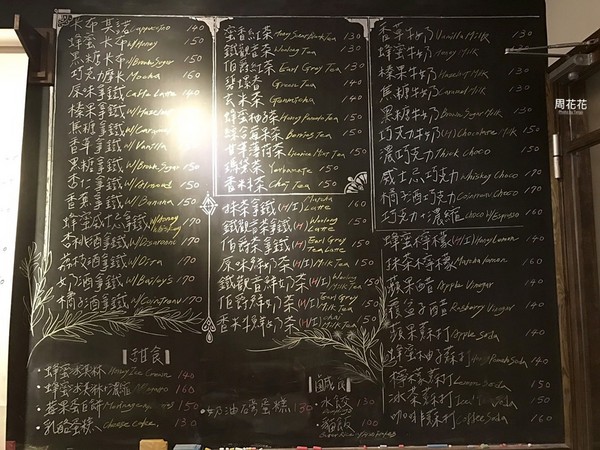 卡布其諾 Cappuccino 140
蜂蜜卡布 w/Honey 150
黑糖卡布 w/Brown Sugar 150
巧克力 Mocha 160
原味拿鐵 Caffe Latte 140
榛果拿鐵 w/Hazelnut
焦糖拿鐵 w/Caramel
香草拿鐵 w/Vanilla
黑糖拿鐵 w/Brown Sugar 150
杏仁拿鐵 w/Almond 150
香蕉拿鐵 w/Banana 150
蜂蜜威士忌拿鐵 w/Honey Whiskey 170
杏桃酒拿鐵 w/Disaronno 170
荔枝酒拿鐵 w/Dita 170
奶酒拿鐵 w/Bailey's 170
橘子酒拿鐵 w/Cointreau 170
甜食
蜂蜜冰淇林 Honey Ice Cream 140
蜂蜜冰淇林+濃縮 Affogato 160
130
乳酪蛋糕 Cheese Cake 130
蜜香紅茶 Tea 130
鐵觀音茶 Woolong Tea 130
伯爵紅茶 Earl Grey Tea 130
碧螺春 Green Tea 140
玄米茶 Genmicha 140
蜂蜜柚子茶 Honey Pomelo Tea 150
綜合莓果茶 Berries Tea 150
甘草薄荷茶 Licorice Mint Tea 150
瑪黛茶 Yerbamate 150
香料茶 Chai Tea 150
抹茶拿鐵 (H/I) Matcha Latte 160
鐵觀音拿鐵 (H/I) Woolong Latte 150
伯爵茶拿鐵 (H/I) Earl Grey Tea Latte 150
原味鮮奶茶 (H/I) Milk Tea 150
鐵觀音鮮奶茶 (H/I) Woolong Milk Tea 150
伯爵鮮奶茶 (H/I) Earl Grey Milk Tea 150
香料鮮奶茶 (H/I) Chai Milk Tea 150
奶油磅蛋糕 130
鹹食
水餃 130
貓飯 100
香草牛奶 Vanilla Milk 130
蜂蜜牛奶 Honey Milk 130
榛果牛奶 Hazelnut Milk 130
焦糖牛奶 Caramel Milk 130
黑糖牛奶 Brown Sugar Milk 130
巧克力牛奶 (H/I) Chocolate Milk 150
濃巧克力 Thick Choco 150
威士忌巧克力 Whiskey Choco 170
橘子酒巧克力 Cointreau Choco 170
巧克力+濃縮 Choco w/Espresso 160
蜂蜜檸檬 (H/I) Honey Lemon 140
抹茶檸檬 Matcha Lemon 160
蘋果醋 Apple Vinegar 140
覆盆子醋 Raspberry Vinegar 140
蘋果蘇打 Apple Soda 140
蜂蜜柚子蘇打 Honey Pomelo Soda 150
檸檬蘇打 Lemon Soda 150
冰茶蘇打 Iced Tea Soda 150
咖啡蘇打 Coffee Soda 160
周花花